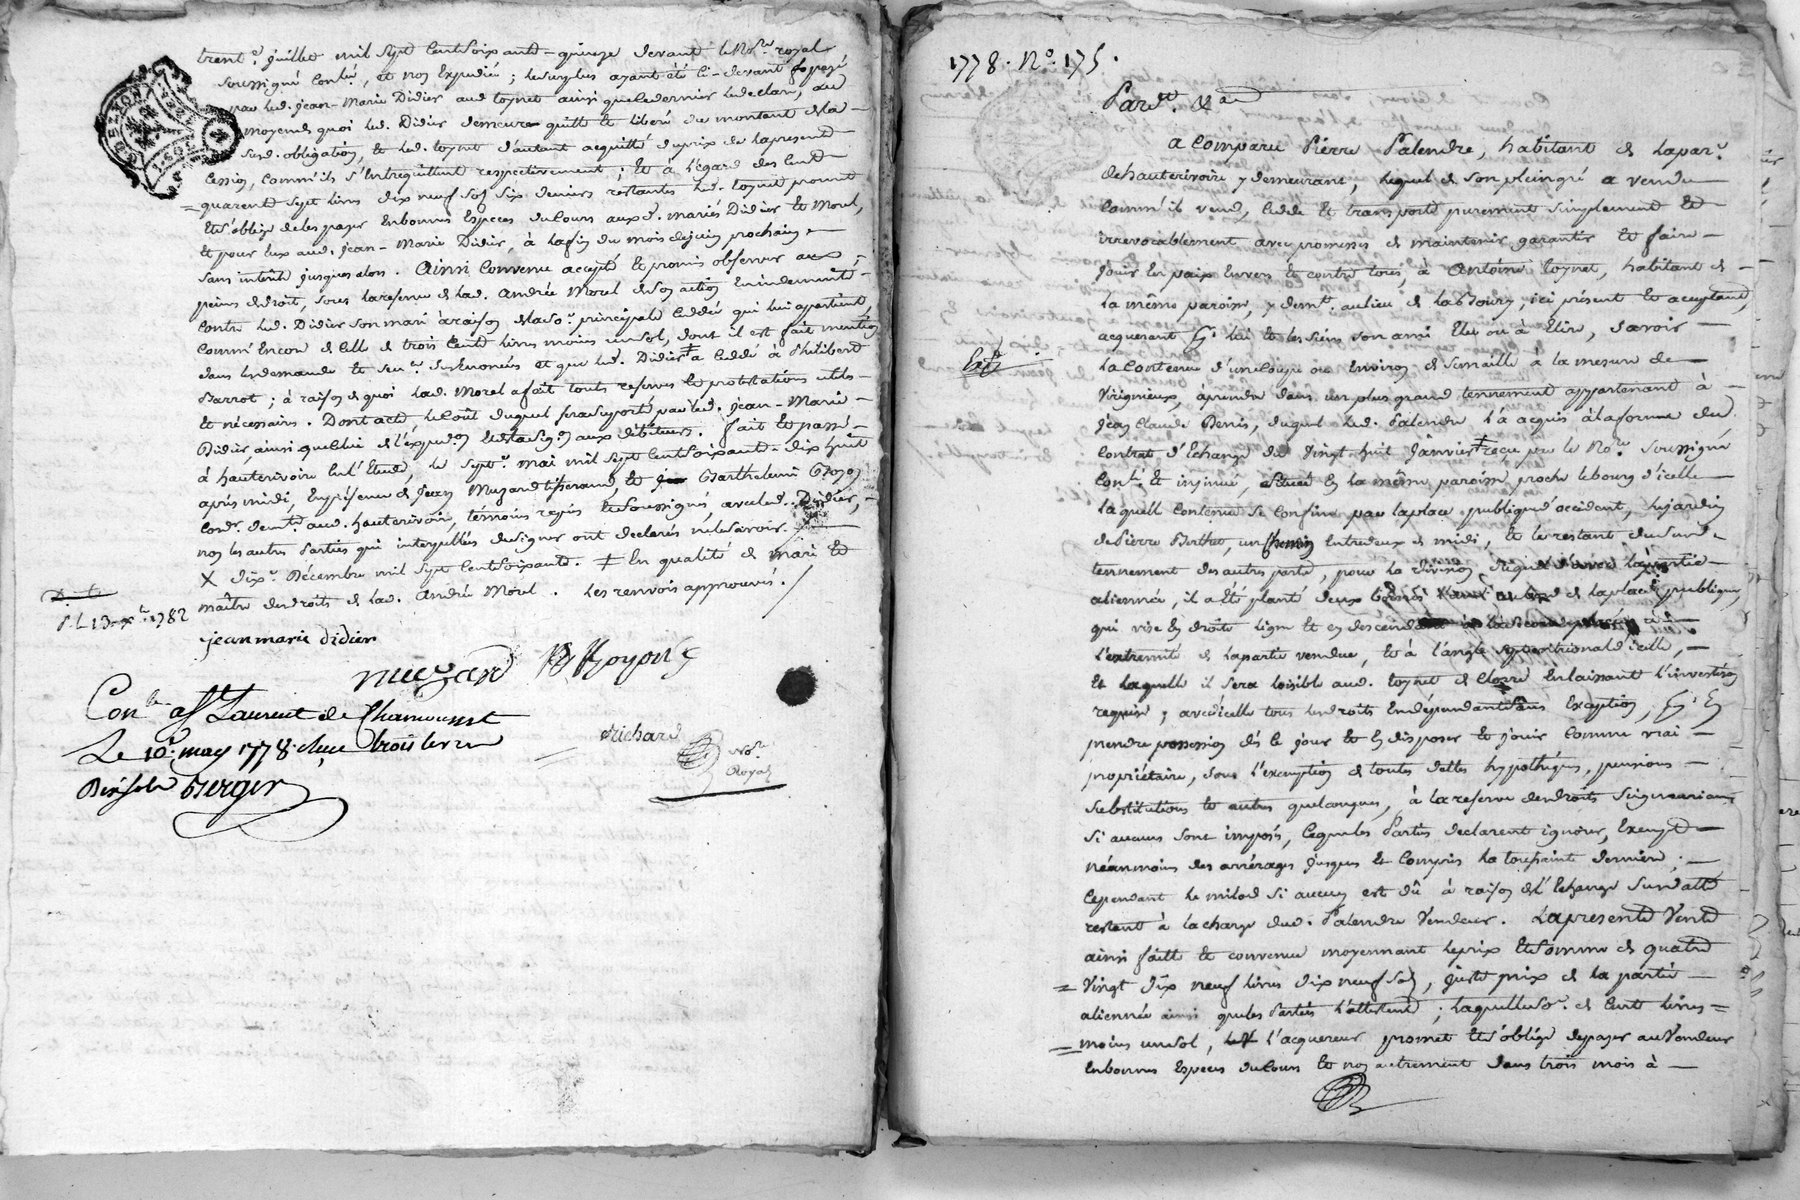 trente juillet mil sept cent soixante-quinze devant le Nore royal
soussigné Conlé, et non Expedié; lesuples ayant été ci-devant
par led. jean-Marie Didier aud. toynet ainsi que le dernier le declare, au
moyend quoi led. Didier demeure quitte et liberé du montant de la
susd. obligation, et led. toynet d'autant acquitté du prix de la presente
Cession, comm'ils s'entrequittent respectivement; et à l'égard des cent
= quarente sept livres dix neuf sols six deniers restantes led. toynet promet
et s'oblige de les payer en bonnes Especes du cours aux d. mariés Didier et Morel,
et pour eux aud. jean-Marie Didier, à la fin du mois de juin prochain
sans interêt jusques alors. Ainsi Convenu accepté et promis observer aux
peines de droit, sous la reserve de lad. Andrée Morel de son action en indemnité
contre led. Didier son mari à raison de la so.e principale cedée qui lui appartient,
comm'encore de celle de trois cents livres moins un sol, dont il est fait mention
dans les demande et sen.ce susenoncées et que led. Didier ‡ a cedée à Philibert
Barrot; à raison de quoi lad. Morel a fait toutes reserves et protestations utiles
et nécessaires. Dont acte, le coût duquel sera suporté par led. jean-Marie
Didier, ainsi que celui de l'expedon et de la sign.on aux débiteurs. fait et passé
à hauterivoire en l'Etude, le sept.e mai mil sept cent soixante-dix huit
après midi, En présence de Jean Muzard tisserand, et Barthelemi Goyon
Cord.r demt. aud. hauterivoire, témoins requis et soussignés avec led. Didier,
non les autres Parties qui interpellées de signer ont declarés ne le savoir.
X dix.e Décembre mil sept cent soixante. ‡ En qualité de mari et
maître des droits de lad. Andrée Morel. les renvois approuvés.
P. L 13 xbre 1782
jean marie didier
muzard B Goyon
Conlé a St Laurent de Chamousset
Le 10e may 1778. reçu trois livres
Berger
Richard
Nore
Royal
1778. No. 175.
Pard.t &a
a Comparu Pierre Palendre, habitant de la par.e
de hauterivoire y demeurant, lequel de son plein gré a vendu
comm'il vend, cedde et transporte purement simplement et
irrevocablement avec promesses de maintenir garantir et faire
jouir en paix envers et contre tous, à Antoine toynet, habitant de
la même paroisse, y demt. au lieu de la bourg, ici présent et acceptant,
acquerant pr. lui et les siens son ami Elu ou à Elire, savoir
la Contenue d'une coupe ou Environ de semaille à la mesure de
Virigneux, à prendre dans un plus grand tennement appartenant à
Jean Claude Benis, duquel led. Palendre l'a acquis à la forme du
Contrat d'Echange du Vingt huit Janvier ‡ reçu par le Nore. Soussigné
Conlé. et insinué, située en la même paroisse, proche le bourg d'icelle
laquelle contenue se confine par la place publique d'occident, le jardin
de Pierre Berthet, un chemin entredeux de midi, et le restant du susd.
tennement des autres parts, pour la division d'icelui d'avec la partie
alienée, il a été planté deux bornes de la place publique,
qui vise en droite ligne et en descendant
l'extremité de la partie vendue, et à l'angle septentrional d'icelle,
et laquelle il sera loisible aud. toynet de clorre en laissant l'investison
requise; avec icelle tous les droits En dépendants sans Exception, pr. En
prendre possession dès ce jour et en disposer et jouir comme vrai
propriétaire, sous l'exemption de toutes dettes hypothèques, pensions
substitutions et autres quelconques, à la reserve des droits seigneuriaux
si aucuns sont imposés, ce que les Parties declarent ignorer, Exempte
néanmoins des arrérages jusques et compris la toussaint derniere;
cependant le milod si aucun est dû à raison de l'echange sus datté
restant à la charge dud. Palendre Vendeur. La presente Vente
ainsi faitte et convenue moyennant le prix et somme de quatre
= Vingt dix neuf livres dix neuf sols, juste prix de la partie
alienée ainsi que les Parties l'attestent; laquelle so.e de cent livres
= moins un sol, l'acquereur promet et s'oblige de payer au Vendeur
en bonnes Especes du cours et non autrement dans trois mois à